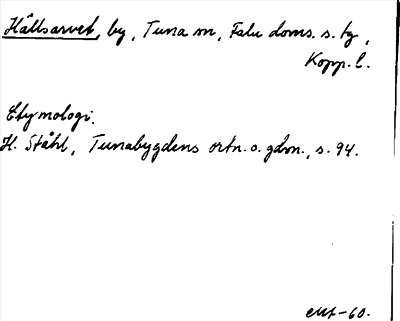 Hållsarvet, by, Tuna sn, Falu doms. s. tg,
Kopp. l.
Etymologi.
H. Ståhl, Tunabygdens ortn. o. gdsn., s. 94.
-60.